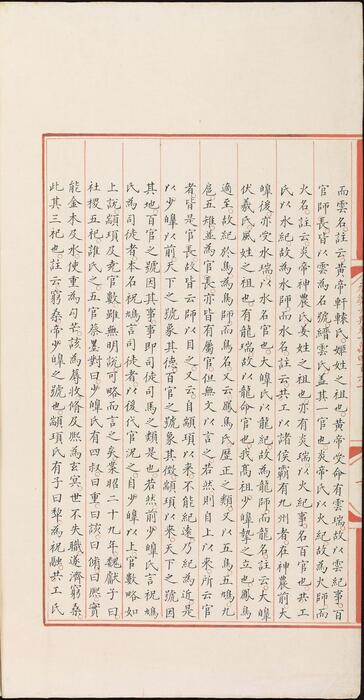 而雲名註云黃帝軒轅氏姬姓之祖也黃帝受命有雲瑞故以雲紀事百
官師長皆以雲為名號縉雲氏蓋其一官也炎帝氏以火紀故為火師而
火名註云炎帝神農氏姜姓之祖也亦有火瑞以火紀事名百官也共工
氏以水紀故為水師而水名註云共工以諸侯霸有九州者在神農前大
皞後亦受水瑞以水名官也大皞氏以龍紀故為龍師而龍名註云大皞
伏羲氏風姓之祖也有龍瑞故以龍命官也我高祖少皞摯之立也鳳鳥
適至故紀於鳥為鳥師而鳥名又云鳳鳥氏歷正之類又以五鳥五鳩九
扈五雉並為官長亦皆有屬官但無文以言之若然則自上以來所云官
者皆是官長故皆云師以目之又云自顓頊以來不能紀遠乃紀為近是
以少皞以前天下之號象其德百官之號象其徵顓頊以來天下之號因
其地百官之號因其事事即司徒司馬之類是也若然前少皞氏言祝鳩
氏為司徒者本名祝鳩言司徒者以後代官況之自少皞以上官數略如
上說顓頊及堯官數雖無明說可略而言之矣案昭二十九年魏獻子曰
社稷五祀誰氏之五官蔡墨對曰少皞氏有四叔曰重曰該曰脩曰熙實
能金木及水使重為勾芒該為蓐收脩及熙為玄冥世不失職遂濟窮桑
此其三祀也註云窮桑帝少皞之號也顓頊氏有子曰犂為祝融共工氏